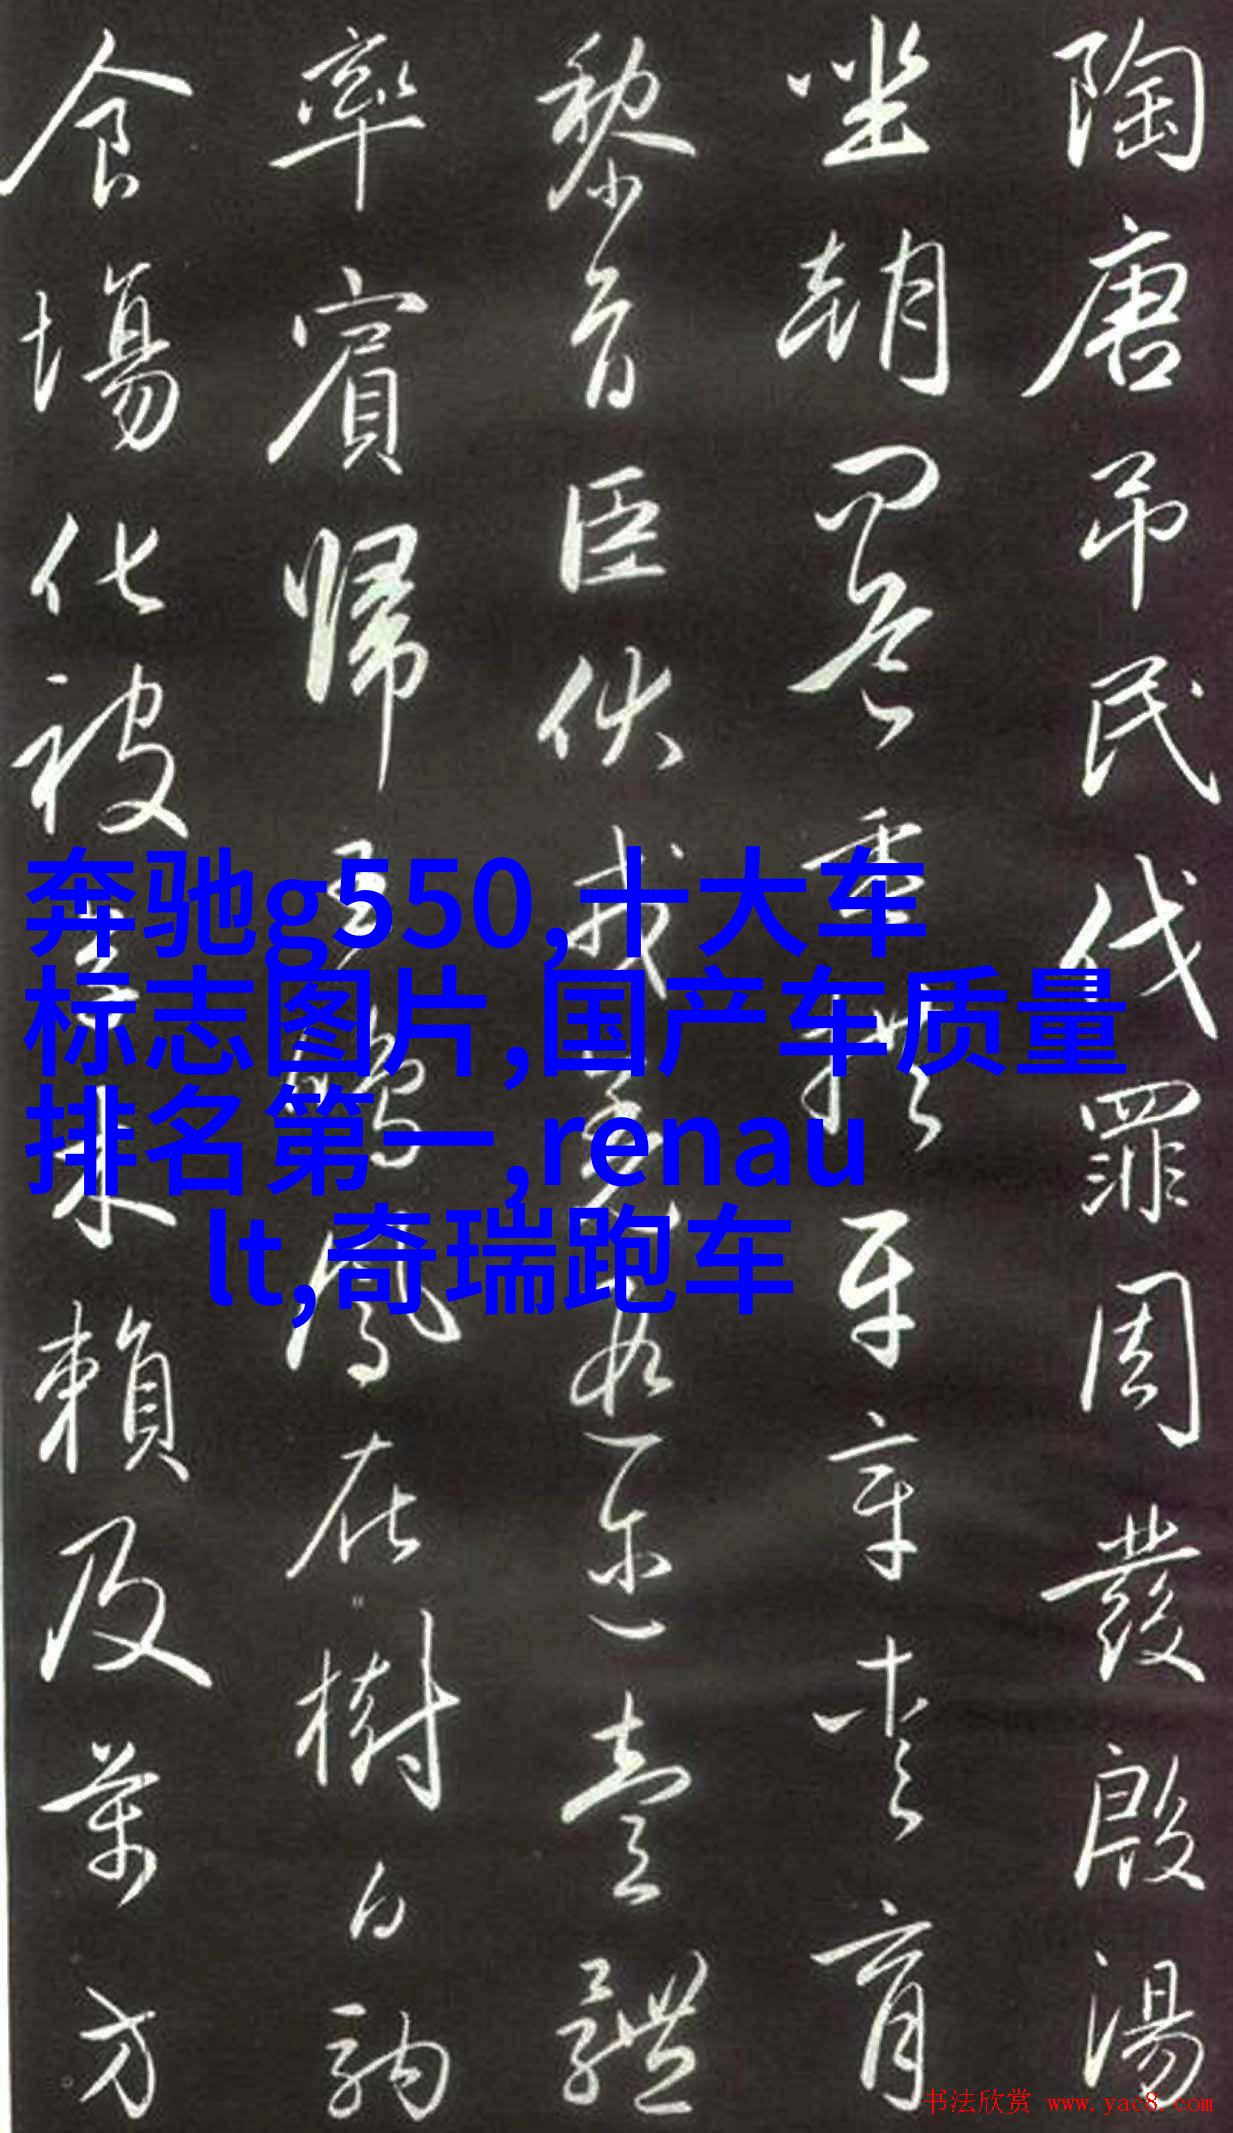 陶唐吊民伐罪周發殷湯
坐朝問道垂拱平章愛育
黎首臣伏戎羌遐邇壹體
率賓歸王鳴鳳在樹白駒
食場化被草木賴及萬方
奔驰g550,十大车
标志图片,国产车质量
排名第一,renau
lt,奇瑞跑车
书法欣赏 www.yac8.com